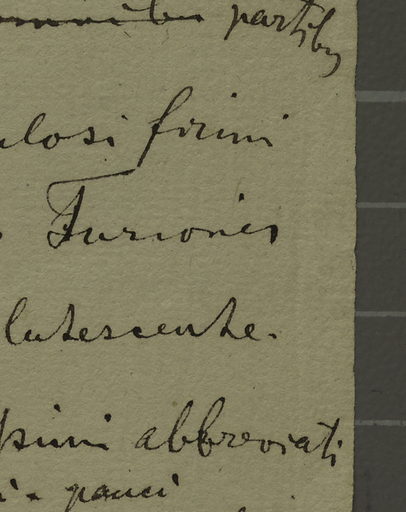 partibus
ulosi firmi
Turiones
lutescente.
abbreviati
pauci